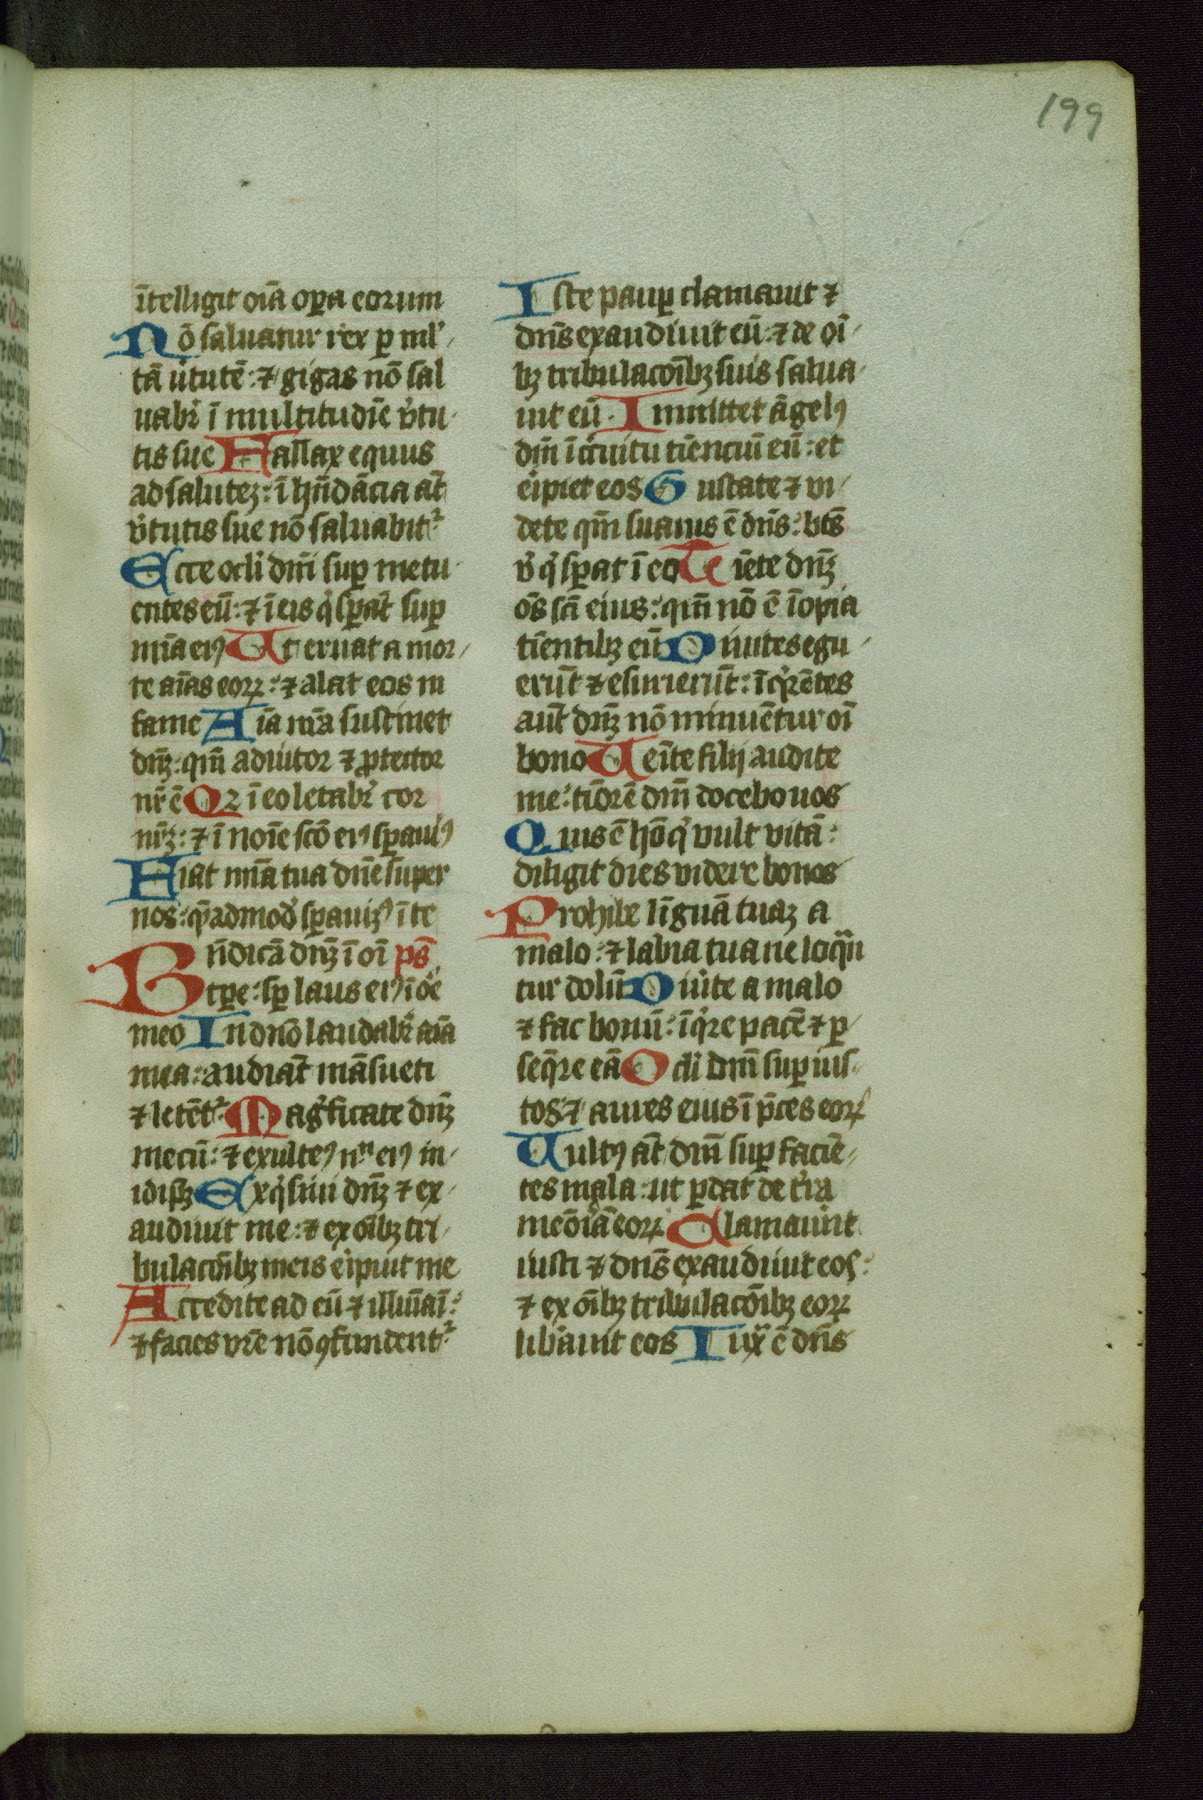 199
ītelligit oīa oꝑa eorum
Nō saluatur rex ꝑ ml'-
tā v̓tutē: ⁊ gigas nō sal
uabr̄ ī multitudīe v̓tu-
tis sue Fallax equus
ad salutez: ī hn̄dācia at̄
v̓tutis sue nō saluabit᷑
Ecce ocli dn̄i suꝑ metu-
entes eū: ⁊ ī eis q̓ sꝑāt suꝑ
mīa eiꝰ Ut eruat a mor-
te aīas eoꝝ: ⁊ alat eos in
fame Aīa nr̄a sustinet
dn̄ꝫ: qm̄ adiutor ⁊ ꝓtector
nr̄ ē Qꝛ ī eo letabr̄ cor
nr̄ꝫ: ⁊ ī noīe scō eiꝰ sꝑauiꝰ
Fiat mīa tua dn̄e super
nos: q̄admod̄ sꝑauiꝰ ī te
Bn̄dicā dn̄ꝫ ī oī ps̄
tꝑe: sꝑ laus eiꝰ ī oe
meo In dn̄o laudabr̄ aīa
mea: audiāt māsueti
⁊ letēt᷑ Mag̓ficate dn̄ꝫ
mecū: ⁊ exulteꝰ nᵐ eiꝰ in-
idip̄ꝫ Exq̓siui dn̄ꝫ ⁊ ex-
audiuit me: ⁊ ex oīb; tri-
bulacōīb; meis eipuit me
Accedite ad eū ⁊ illuīaī:
⁊ facies vr̄e nō ꝯfundent᷑
Iste pauꝑ clamauit ⁊
dn̄s exaudiuit eū: ⁊ de oī-
b; tribulacōīb; suis salua-
uit eū. Inmittet āgelꝰ
dn̄i ī c̓cuitu tīenciū eū: et
eipiet eos Gustate ⁊ vi-
dete qm̄ suauis ē dn̄s: bt̄s
v̓ q̓ sꝑat ī eo Tīete dn̄ꝫ
oēs sc̄i eius: qm̄ nō ē īopia
tīentib; eū Diuites egu-
erūt ⁊ esurierūt: īq̓rētes
aut̄ dn̄ꝫ nō minuētur oī
bono Ueīte filij audite
me: tīorē dn̄i docebo uos
Quis ē hō q̓ vult vitā:
diligit dies videre bonos
Prohibe līguā tuaꝫ a
malo: ⁊ labia tua ne loq̄n
tur dolū Diūte a malo
⁊ fac bonū: īq̓re pacē ⁊ ꝑ
seq̄re eā Ocli dn̄i suꝑ ius-
tos: ⁊ aures eius ī p̄ces eoꝝ
Uultꝰ āt dn̄i suꝑ faciē-
tes mala: ut ꝑdat de t̓ra
meōīā eoꝝ Clamauīnt
iusti ⁊ dn̄s exaudiuit eos:
⁊ ex oīb; tribulacōīb; eoꝝ
lib̓auit eos Iux̄ ē dn̄s